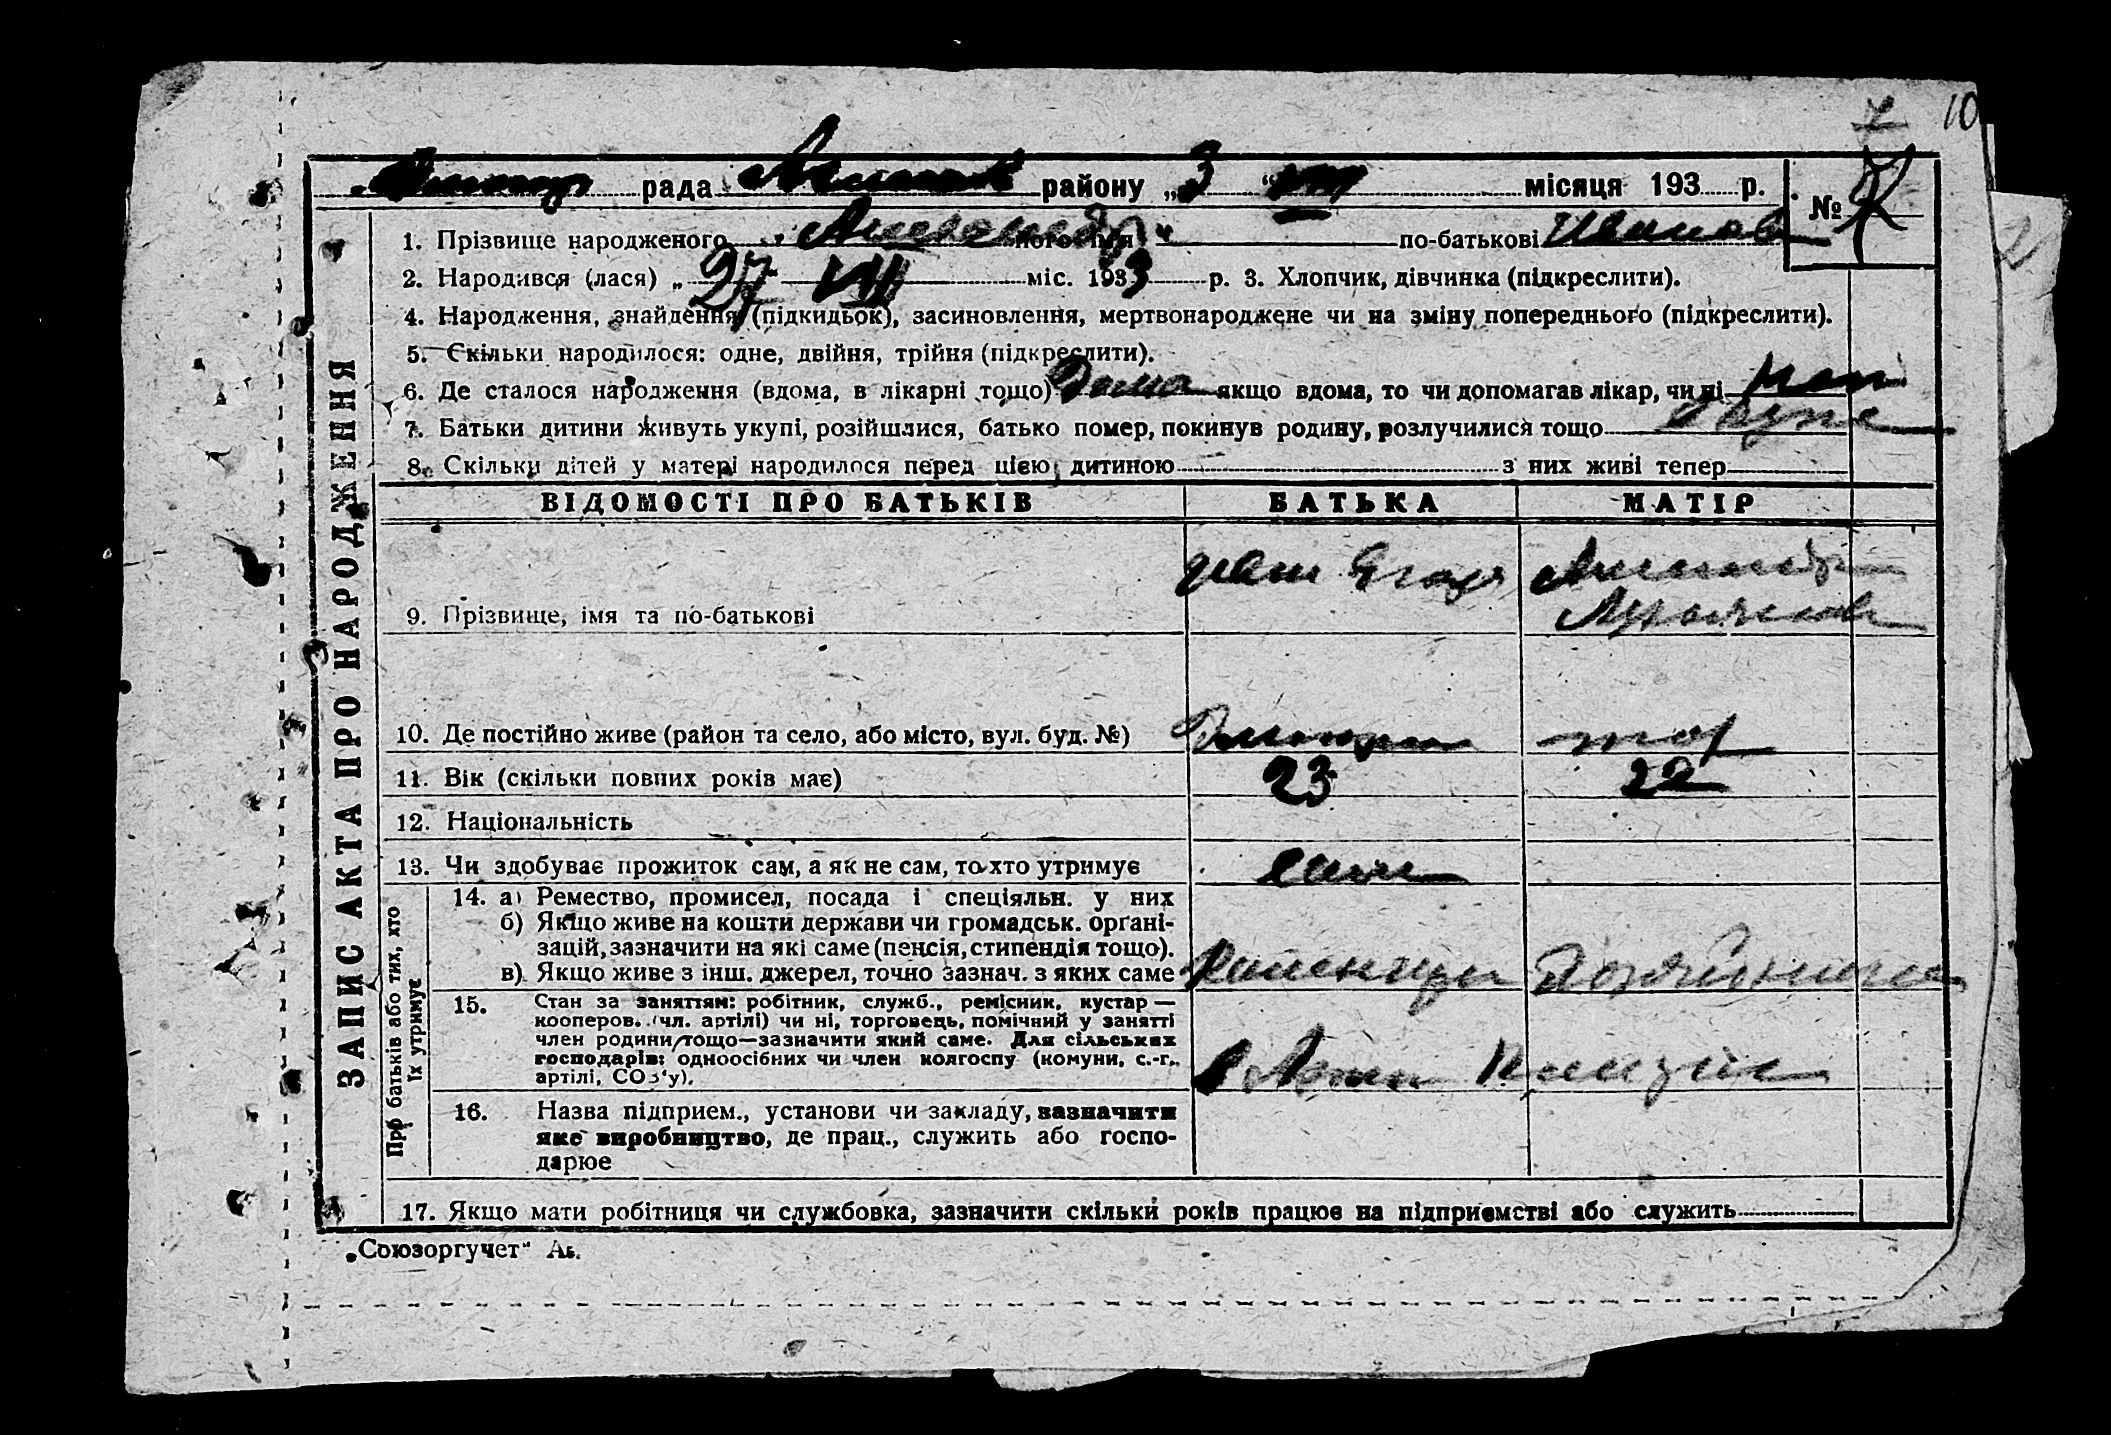 10
рада району „3“ місяця 193 р. №
1. Прізвище народженого Александр по-батькові Иванов
2. Народився (лася) „27 VIII міс. 1933 р. 3. Хлопчик, дівчинка (підкреслити).
4. Народження, знайдення (підкидьок), засиновлення, мертвонароджене чи на зміну попереднього (підкреслити).
5. Скільки народилося: одне, двійня, трійня (підкреслити).
6. Де сталося народження (вдома, в лікарні тощо) Дома якщо вдома, то чи допомагав лікар, чи ні нет
7. Батьки дитини живуть укупі, розійшлися, батько помер, покинув родину, розлучилися тощо
8. Скільки дітей у матері народилося перед цією дитиною з них живі тепер
ЗАПИС АКТА ПРО НАРОДЖЕННЯ
ВІДОМОСТІ ПРО БАТЬКІВ БАТЬКА МАТІР
9. Прізвище, імя та по-батькові
10. Де постійно живе (район та село, або місто, вул. буд. №)
11. Вік (скільки повних років має) 23 22
12. Національність
13. Чи здобуває прожиток сам, а як не сам, то хто утримує сам
Про батьків або тих, хто
їх утримує
14. а) Ремество, промисел, посада і спеціяльн. у них
б) Якщо живе на кошти держави чи громадськ. органі-
зацій, зазначити на які саме (пенсія, стипендія тощо).
в) Якщо живе з інш. джерел, точно зазнач. з яких саме
15. Стан за заняттям: робітник, служб., ремісник, кустар —
кооперов. (чл. артілі) чи ні, торговець, помічний у занятті
член родини тощо—зазначити який саме. Для сільських
господарів: одноосібних чи член колгоспу (комуни, с.-г.
артілі, СОЗ'у).
16. Назва підприєм., установи чи закладу, зазначити
яке виробництво, де прац., служить або госпо-
дарює
17. Якщо мати робітниця чи службовка, зазначити скільки років працює на підприємстві або служить
„Союзоргучет“